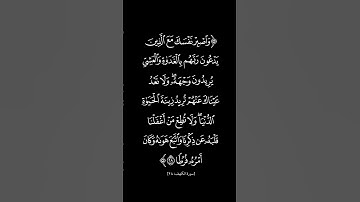 ﴿وَٱصۡبِرۡ نَفۡسَكَ مَعَ ٱلَّذِينَ
يَدۡعُونَ رَبَّهُم بِٱلۡغَدَوٰةِ وَٱلۡعَشِيِّ
يُرِيدُونَ وَجۡهَهُۥۖ وَلَا تَعۡدُ
عَيۡنَاكَ عَنۡهُمۡ تُرِيدُ زِينَةَ ٱلۡحَيَوٰةِ
ٱلدُّنۡيَاۖ وَلَا تُطِعۡ مَنۡ أَغۡفَلۡنَا
قَلۡبَهُۥ عَن ذِكۡرِنَا وَٱتَّبَعَ هَوَىٰهُ وَكَانَ
أَمۡرُهُۥ فُرُطٗا ٢٨﴾
[سورة الكهف: ٢٨]